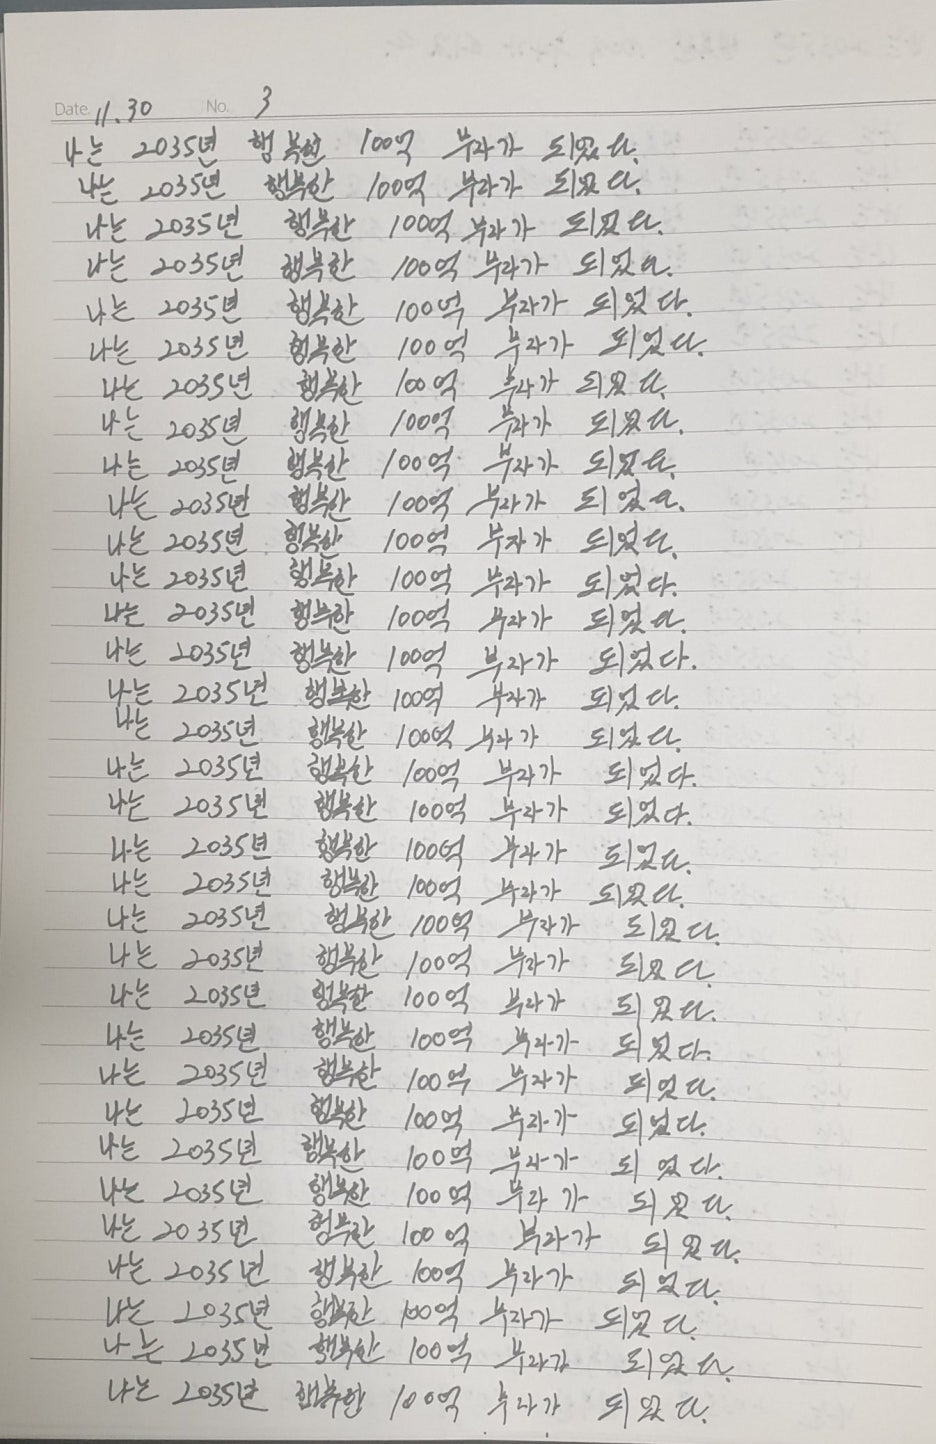 Date 11.30 No. 3
나는 2035년 행복한 100억 부자가 되었다.
나는 2035년 행복한 100억 부자가 되었다.
나는 2035년 행복한 100억 부자가 되었다.
나는 2035년 행복한 100억 부자가 되었다.
나는 2035년 행복한 100억 부자가 되었다.
나는 2035년 행복한 100억 부자가 되었다.
나는 2035년 행복한 100억 부자가 되었다.
나는 2035년 행복한 100억 부자가 되었다.
나는 2035년 행복한 100억 부자가 되었다.
나는 2035년 행복한 100억 부자가 되었다.
나는 2035년 행복한 100억 부자가 되었다.
나는 2035년 행복한 100억 부자가 되었다.
나는 2035년 행복한 100억 부자가 되었다.
나는 2035년 행복한 100억 부자가 되었다.
나는 2035년 행복한 100억 부자가 되었다.
나는 2035년 행복한 100억 부자가 되었다.
나는 2035년 행복한 100억 부자가 되었다.
나는 2035년 행복한 100억 부자가 되었다.
나는 2035년 행복한 100억 부자가 되었다.
나는 2035년 행복한 100억 부자가 되었다.
나는 2035년 행복한 100억 부자가 되었다.
나는 2035년 행복한 100억 부자가 되었다.
나는 2035년 행복한 100억 부자가 되었다.
나는 2035년 행복한 100억 부자가 되었다.
나는 2035년 행복한 100억 부자가 되었다.
나는 2035년 행복한 100억 부자가 되었다.
나는 2035년 행복한 100억 부자가 되었다.
나는 2035년 행복한 100억 부자가 되었다.
나는 2035년 행복한 100억 부자가 되었다.
나는 2035년 행복한 100억 부자가 되었다.
나는 2035년 행복한 100억 부자가 되었다.
나는 2035년 행복한 100억 부자가 되었다.
나는 2035년 행복한 100억 부자가 되었다.